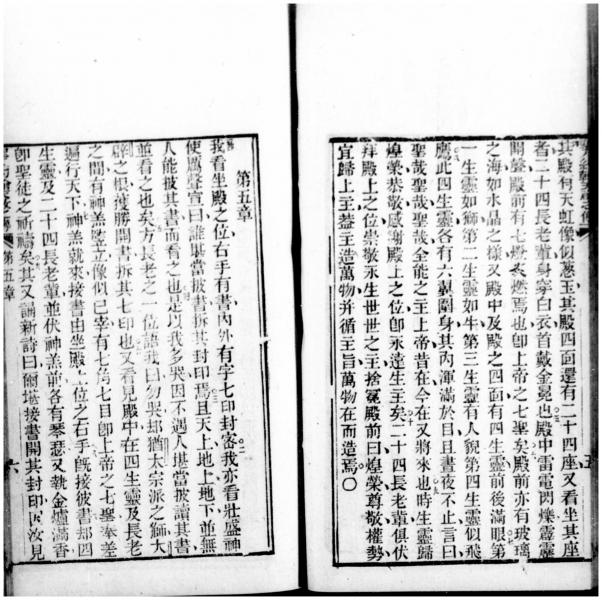 其殿有天虹像似蔥玉其殿四面還有二十四座又看坐其座
者二十四長老輩身穿白衣首戴金冕也殿中雷電閃爍霹靂
開聲殿前有七燈炙燃焉也卽上帝之七聖矣殿前亦有玻璃
之海如水晶之樣又殿中及殿之四面有四生靈前後滿眼第
一生靈如獅第二生靈如牛第三生靈有人貌第四生靈似飛
鷹此四生靈各有六翼圍身其內渾滿於目且晝夜不止言曰
聖哉聖哉聖哉全能之主上帝昔在今在又將來也時生靈歸
煌榮恭敬感謝殿上之位卽永遠生主矣二十四長老輩俱伏
拜殿上之位崇敬永生世世之主捨冕殿前曰煌榮尊敬權勢
宜歸上主蓋主造萬物并循主旨萬物在而造焉○
第五章
我看坐殿之位右手有書內外有字七印封密我亦看壯盛神
使厲聲宣曰誰堪當披書拆其封印焉且天上地上地下並無
人能披其書而看之也是以我多哭因不遇人堪當披讀其書
並看之也矣方長老之一位語我曰勿哭却猶太宗派之獅大
辟之根獲勝開書拆其七印也又看見殿中在四生靈及長老
之間有神羔陞立像似已宰有七角七目卽上帝之七聖奉差
遍行天下神羔就來接書由坐殿上位之右手旣接彼書却四
生靈及二十四長老輩並伏神羔前各有琴瑟又執金爐滿香
卽聖徒之祈禱矣其又誦新詩曰爾堪接書開其封印因汝見
第五章
六